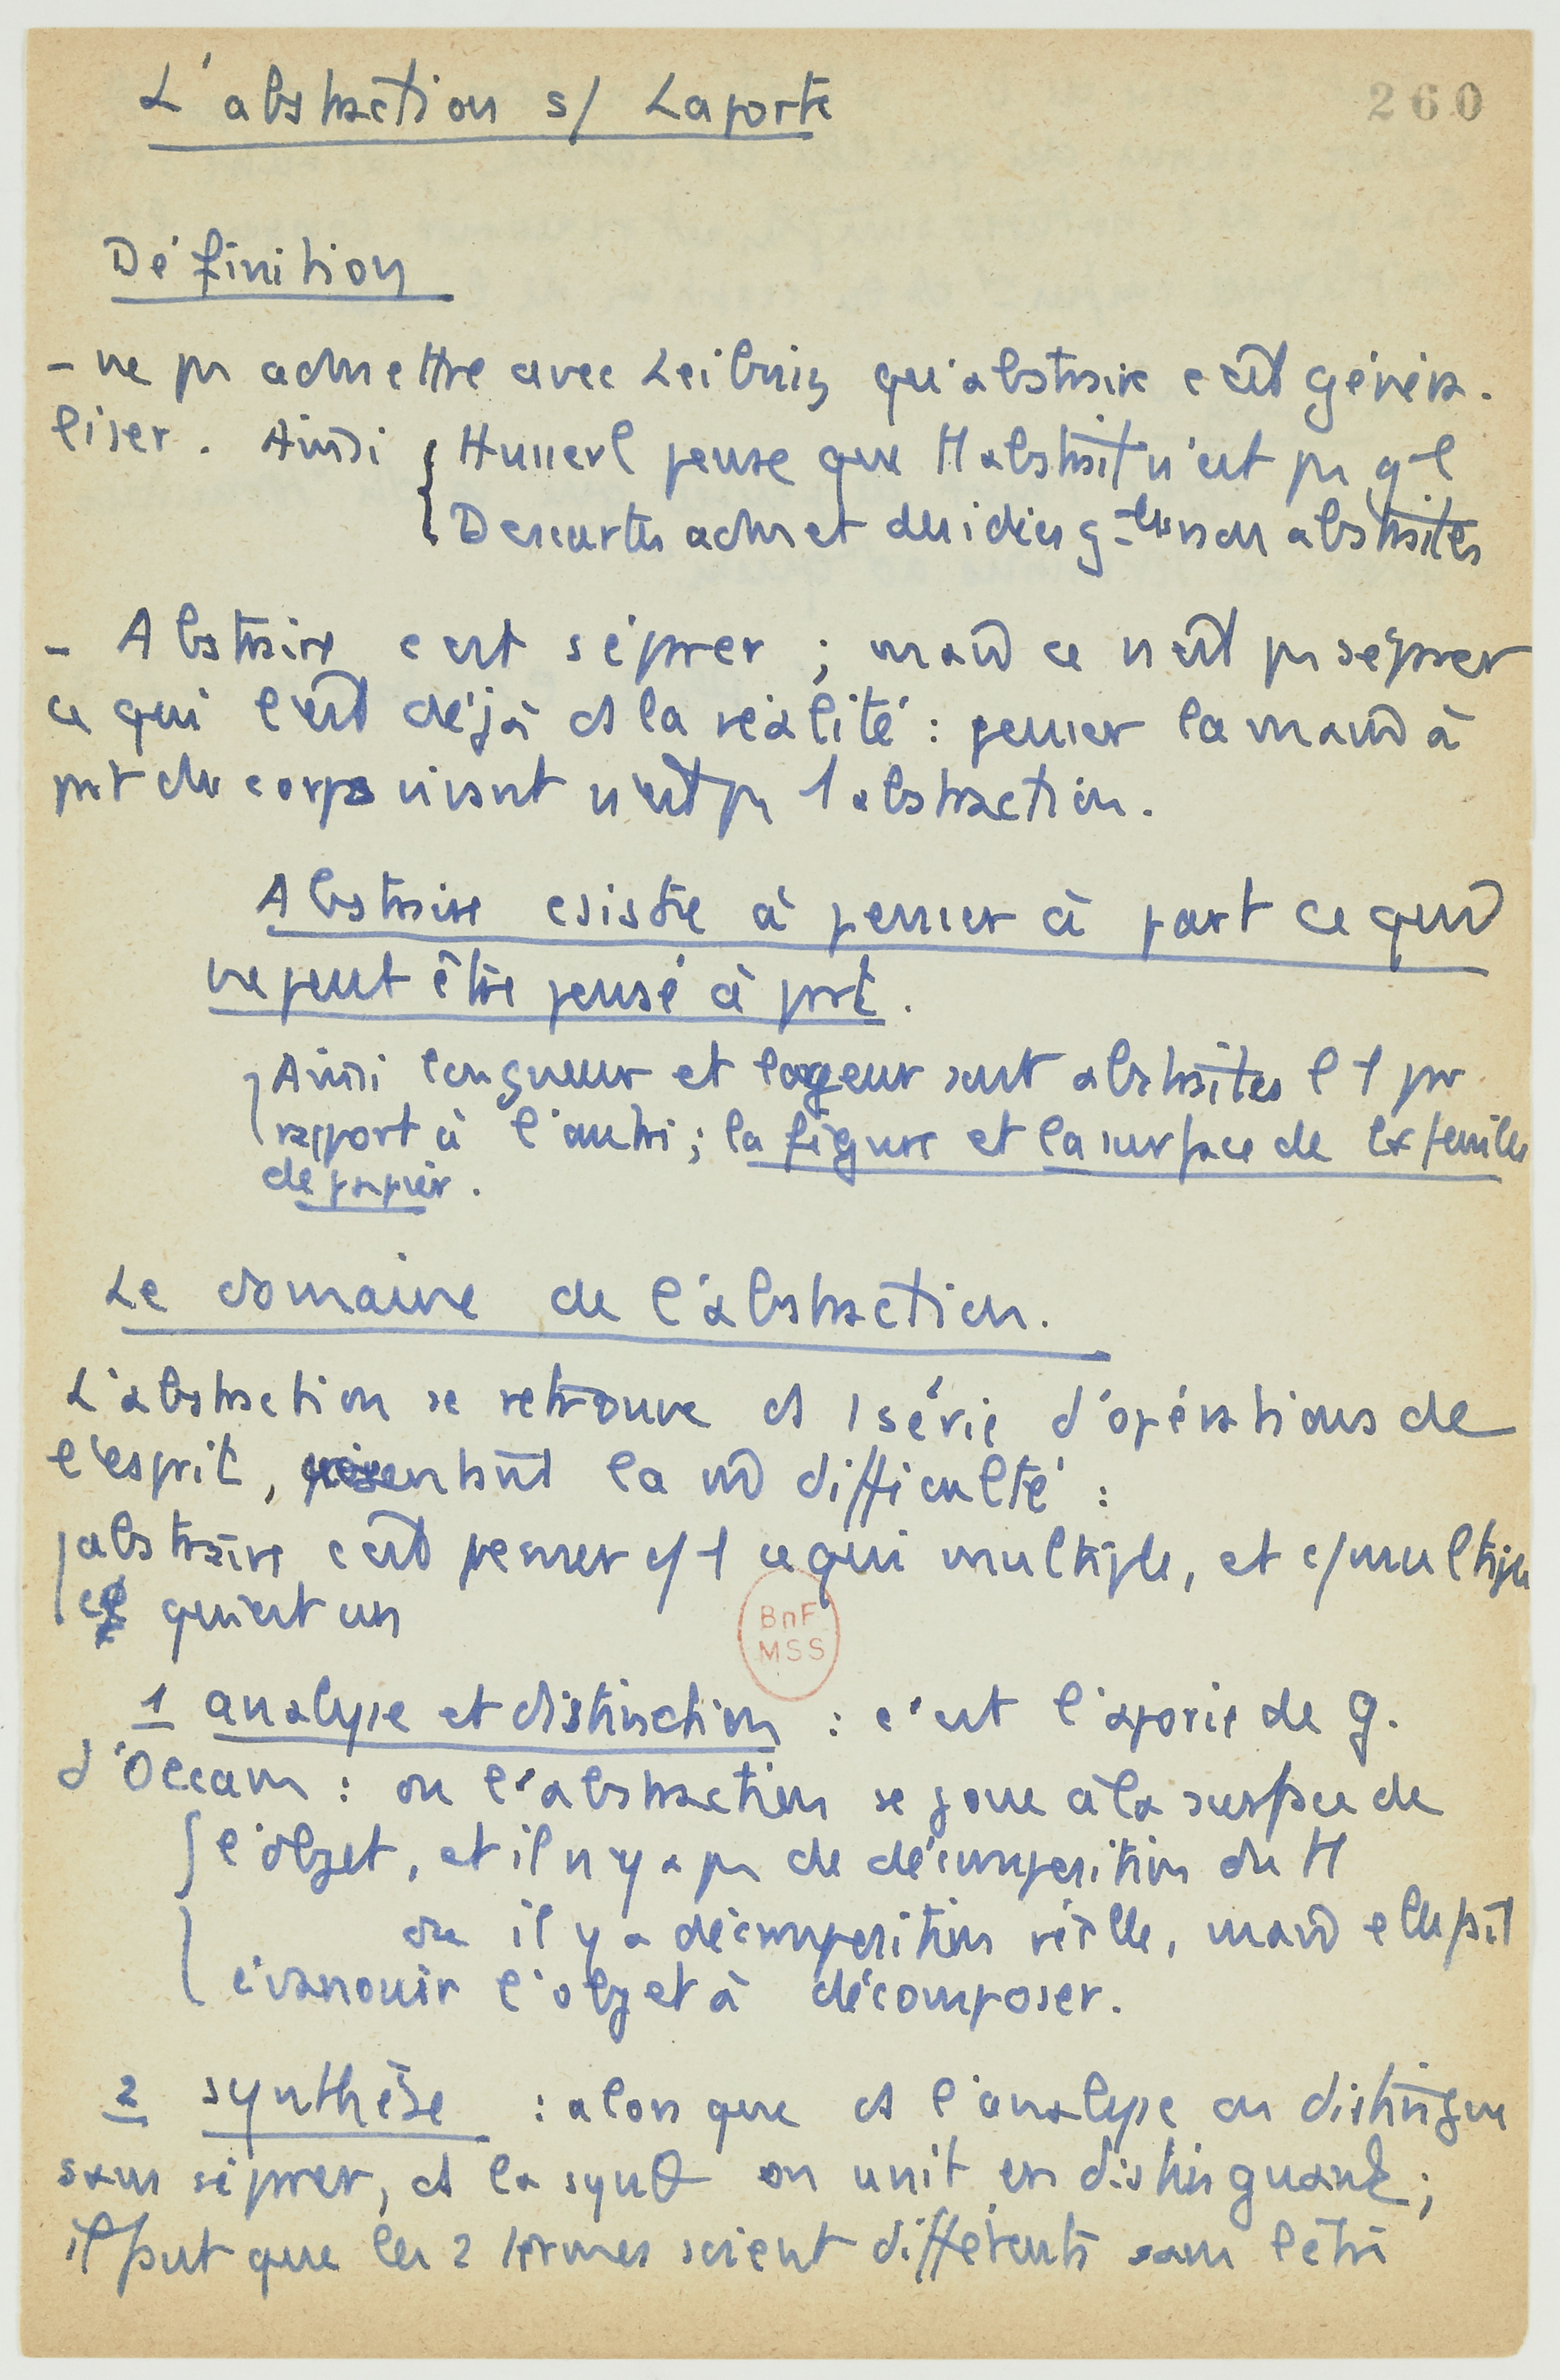 L'abstraction s/ Laporte
260
Définition
- ne pas admettre avec Leibniz que abstraire c'est généra-
liser. Ainsi { Husserl pense que tt abstrait n'est pas g-l
{ Descartes admet des idées g-les non abstraites
- Abstraire c'est séparer ; mais ce n'est pas séparer
ce qui l'est déjà ds la réalité : penser la main à
part du corps vivant n'est pas 1 abstraction.
Abstraire csiste à penser à part ce qui
ne peut être pensé à part.
Ainsi longueur et largeur sont abstraites l'1 par
rapport à l'autre ; la figure et la surface de la feuille
de papier.
Le domaine de l'abstraction.
L'abstraction se retrouve ds 1 série d'opérations de
l'esprit, présentant la m difficulté :
abstraire c'est penser c/ 1 ce qui multiple, et c/ multiple
ce qui est un
1 analyse et distinction : c'est l'aporie de G.
d'Occam : ou l'abstraction se joue à la surface de
l'objet, et il n'y a pas de décomposition du tt
ou il y a décomposition réelle, mais elle fait
évanouir l'objet à décomposer.
BnF
MSS
2 synthèse : alors que ds l'analyse on distingue
sans séparer, ds la synθ on unit en distinguant ;
il faut que les 2 termes soient différents sans l'être